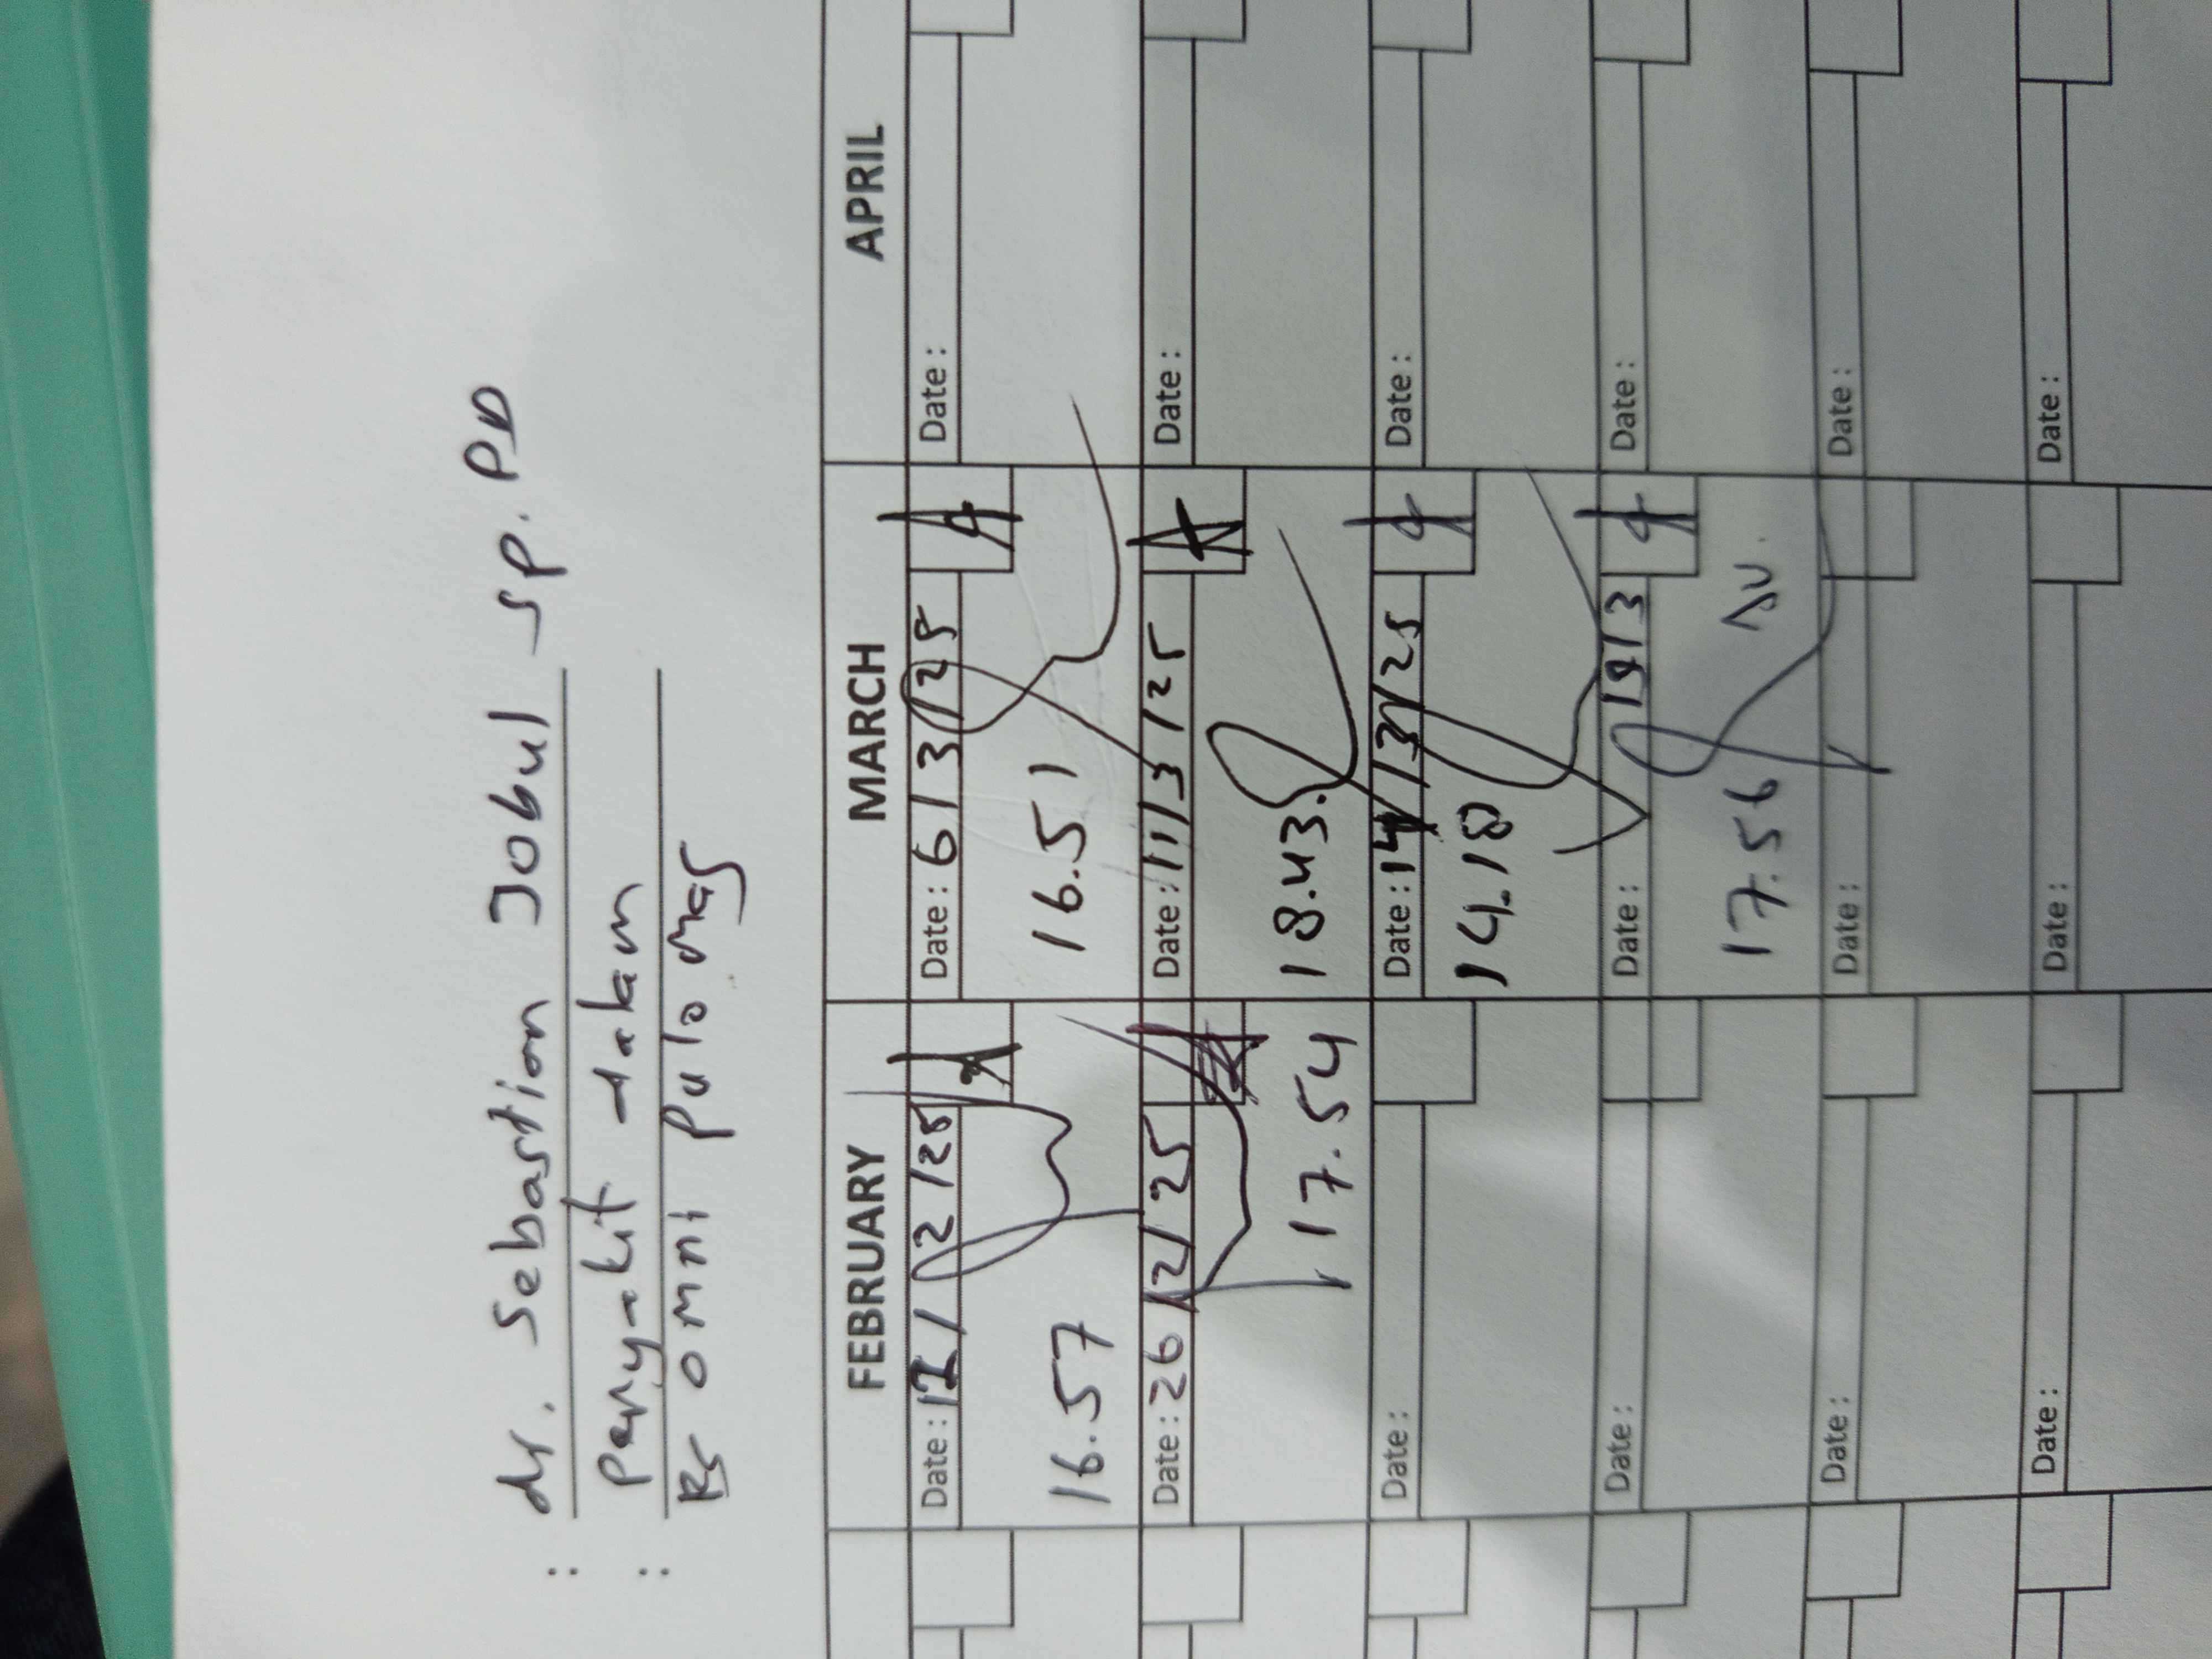 : dr. Sebastian Jobul Sp. PD
: Penyakit dalam
RS OMNI Pulo mas
FEBRUARY MARCH APRIL
Date : 12 / 2 / 25 Date : 6 / 3 / 25 Date :
16.57 16.51
Date : 26 / 2 / 25 Date : 11 / 3 / 25 Date :
17.54 18.43.
Date : Date : 14 / 3 / 25 Date :
14.18
Date : Date : 19 / 3 Date :
17.56
Date : Date : Date :
Date : Date : Date :